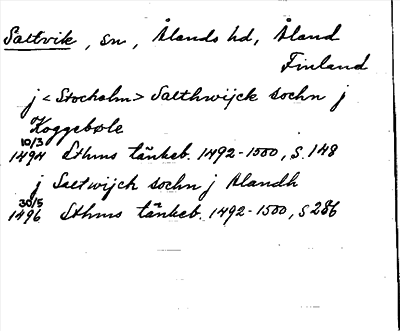 Saltvik, sn, Ålands hd, Åland
Finland
j <Stocholm> Salthwijck sochn j
Koggebøle
10/3
1494 Sthms tänkeb. 1492-1500, S. 148
j Saltwijch sochn j Alandh
30/5
1496 Sthms tänkeb. 1492-1500, S 286